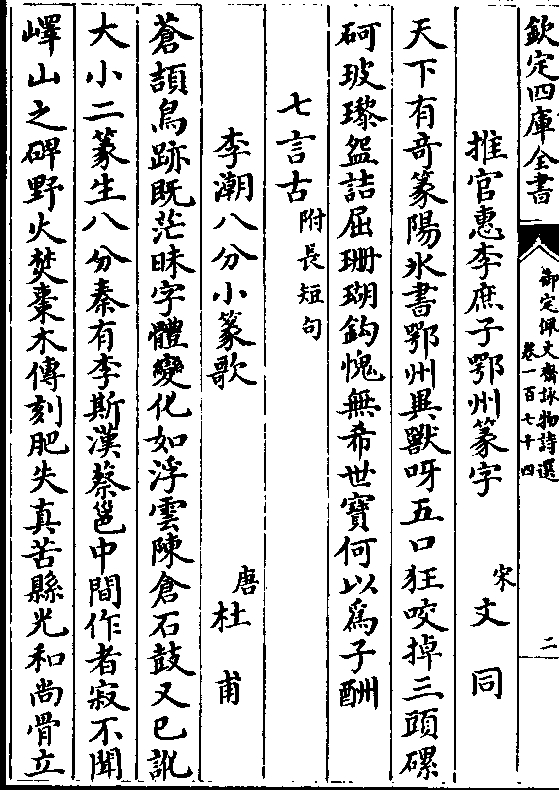 欽定四庫全書
御定佩文齋詠物詩選
卷一百七十四
二
推官惠李庶子鄂州篆字
宋文同
天下有奇篆陽氷書鄂州異獸呀五口狂咬掉三頭磥
砢玻瓈盌詰屈珊瑚鈎愧無希世寶何以為子酬
七言古附長短句
李潮八分小篆歌
唐杜甫
蒼頡鳥跡既茫昧字體變化如浮雲陳倉石鼓又已訛
大小二篆生八分秦有李斯漢蔡邕中間作者寂不聞
嶧山之碑野火焚棗木傳刻肥失真苦縣光和尚骨立